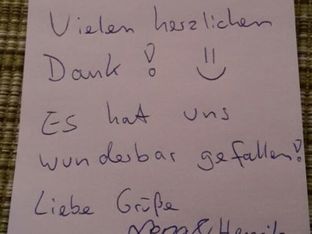 Vielen herzlichen
Dank!
Es hat uns
wunderbar gefallen!
Liebe Grüße